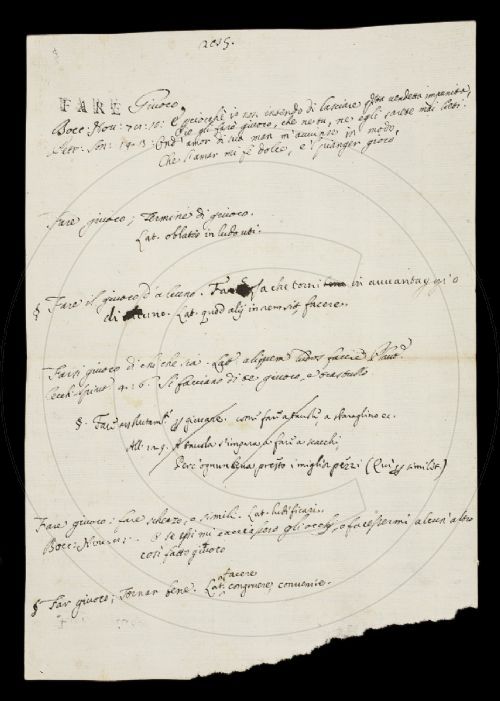 2015.
FARE Giuoco,
Bocc: Nov: 70: 10: E perciochè io non intendo di lasciare vendetta impunita,
io gli farò giuoco, che nè tu, nè egli sarete mai lieti.
Petr: Son: 143: Ond' amor di sua man m'avvinse in modo,
Che l'amar mi fè dolce, e 'l pianger gioco
Fare giuoco; Termine di giuoco.
Lat. in ludo uti.
§ Fare il giuoco d' alcuno. Far sì, che torni in avvantaggio
di alcuno. Lat. quod alij in rem sit, facere.
Farsi giuoco di chi che sia. Lat. aliquem ludos facere Plaut.
Cecch: Spirit: 4: 6: Si facciano di te giuoco, e trastullo
§. Fare giuocare. come fare a tavole, a sbaraglino ec.
All: A tavola s'impara a fare a scacchi,
Perc' ognun leva presto i miglior pezzi (Qui è similit.)
Fare giuoco: fare scherzo, o simili. Lat. ludificari.
Bocc: Nov: E se essi mi cacciassero gli occhi, o facessermi alcun altro
così fatto giuoco
facere
§ Far giuoco; Tornar bene. Lat. congruere, convenire.